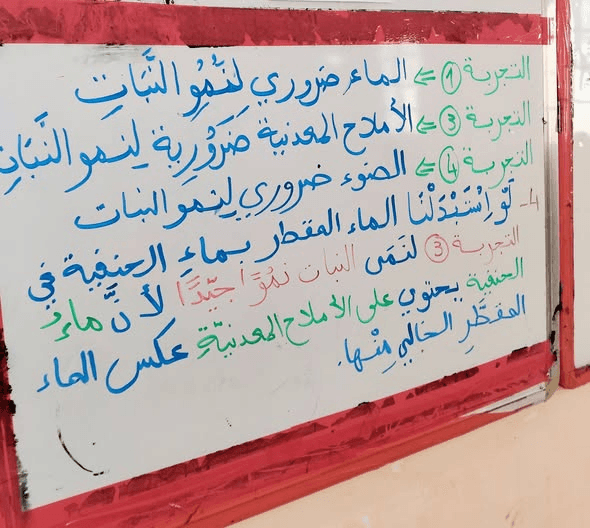 التجربة ① ⇐ الماء ضروري لِنُمُوِ النَّبَاتِ
التجربة ③ ⇐ الأملاح المعدنية ضَرُورِية لِنمو النَّبَاتِ
التجربة ④ ⇐ الضوء ضروري لِنمو النبات
4- لَوْ اِسْتَبْدَلْنَا الماء المقطر بماءِ الحنفية في
التجربة ③ لَنَمَى النبات نُمُوًا جَيِّدًا لأنَّ ماءُ
الحنفية يحتوي على الأملاح المعدنيّةِ عكس الماء
المقطَّرِ الخالي مِنْها.